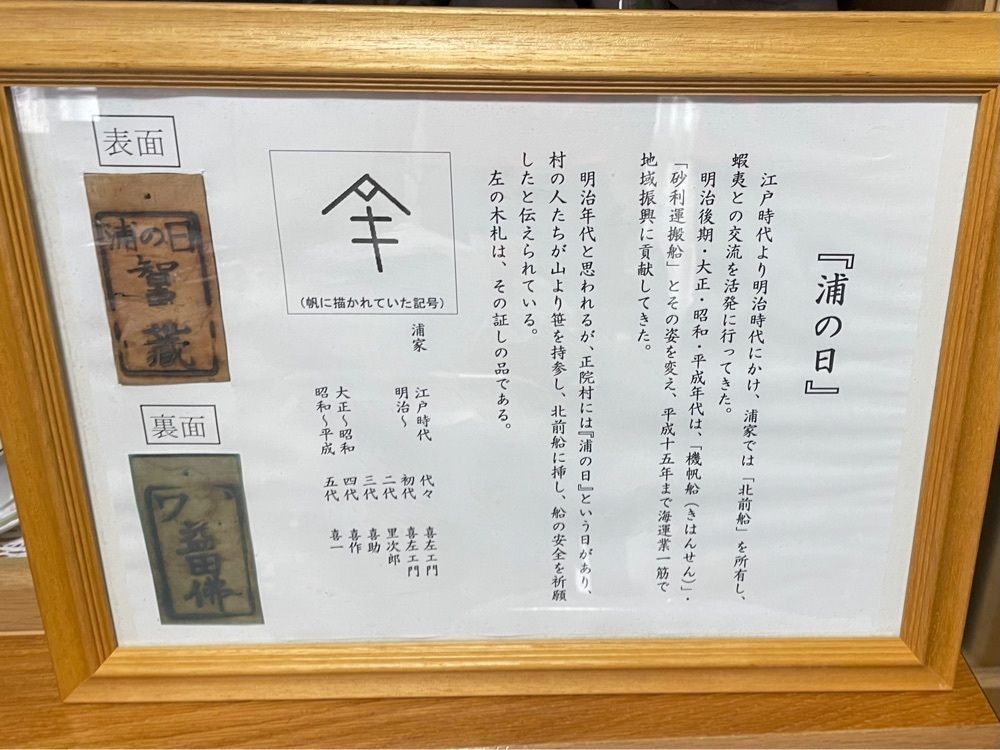 『浦の日』
江戸時代より明治時代にかけ、浦家では「北前船」を所有し、
蝦夷との交流を活発に行ってきた。
明治後期・大正・昭和・平成年代は、「機帆船（きはんせん）」・
「砂利運搬船」とその姿を変え、平成十五年まで海運業一筋で
地域振興に貢献してきた。
明治年代と思われるが、正院村には『浦の日』という日があり、
村の人たちが山より笹を持参し、北前船に挿し、船の安全を祈願
したと伝えられている。
左の木札は、その証しの品である。
キ
（帆に描かれていた記号）
浦家
江戸時代　代々　喜左エ門
明治〜　初代　喜左エ門
二代　里次郎
三代　喜助
大正〜昭和　四代　喜作
昭和〜平成　五代　喜一
表面
浦の日
智蔵
裏面
ワ